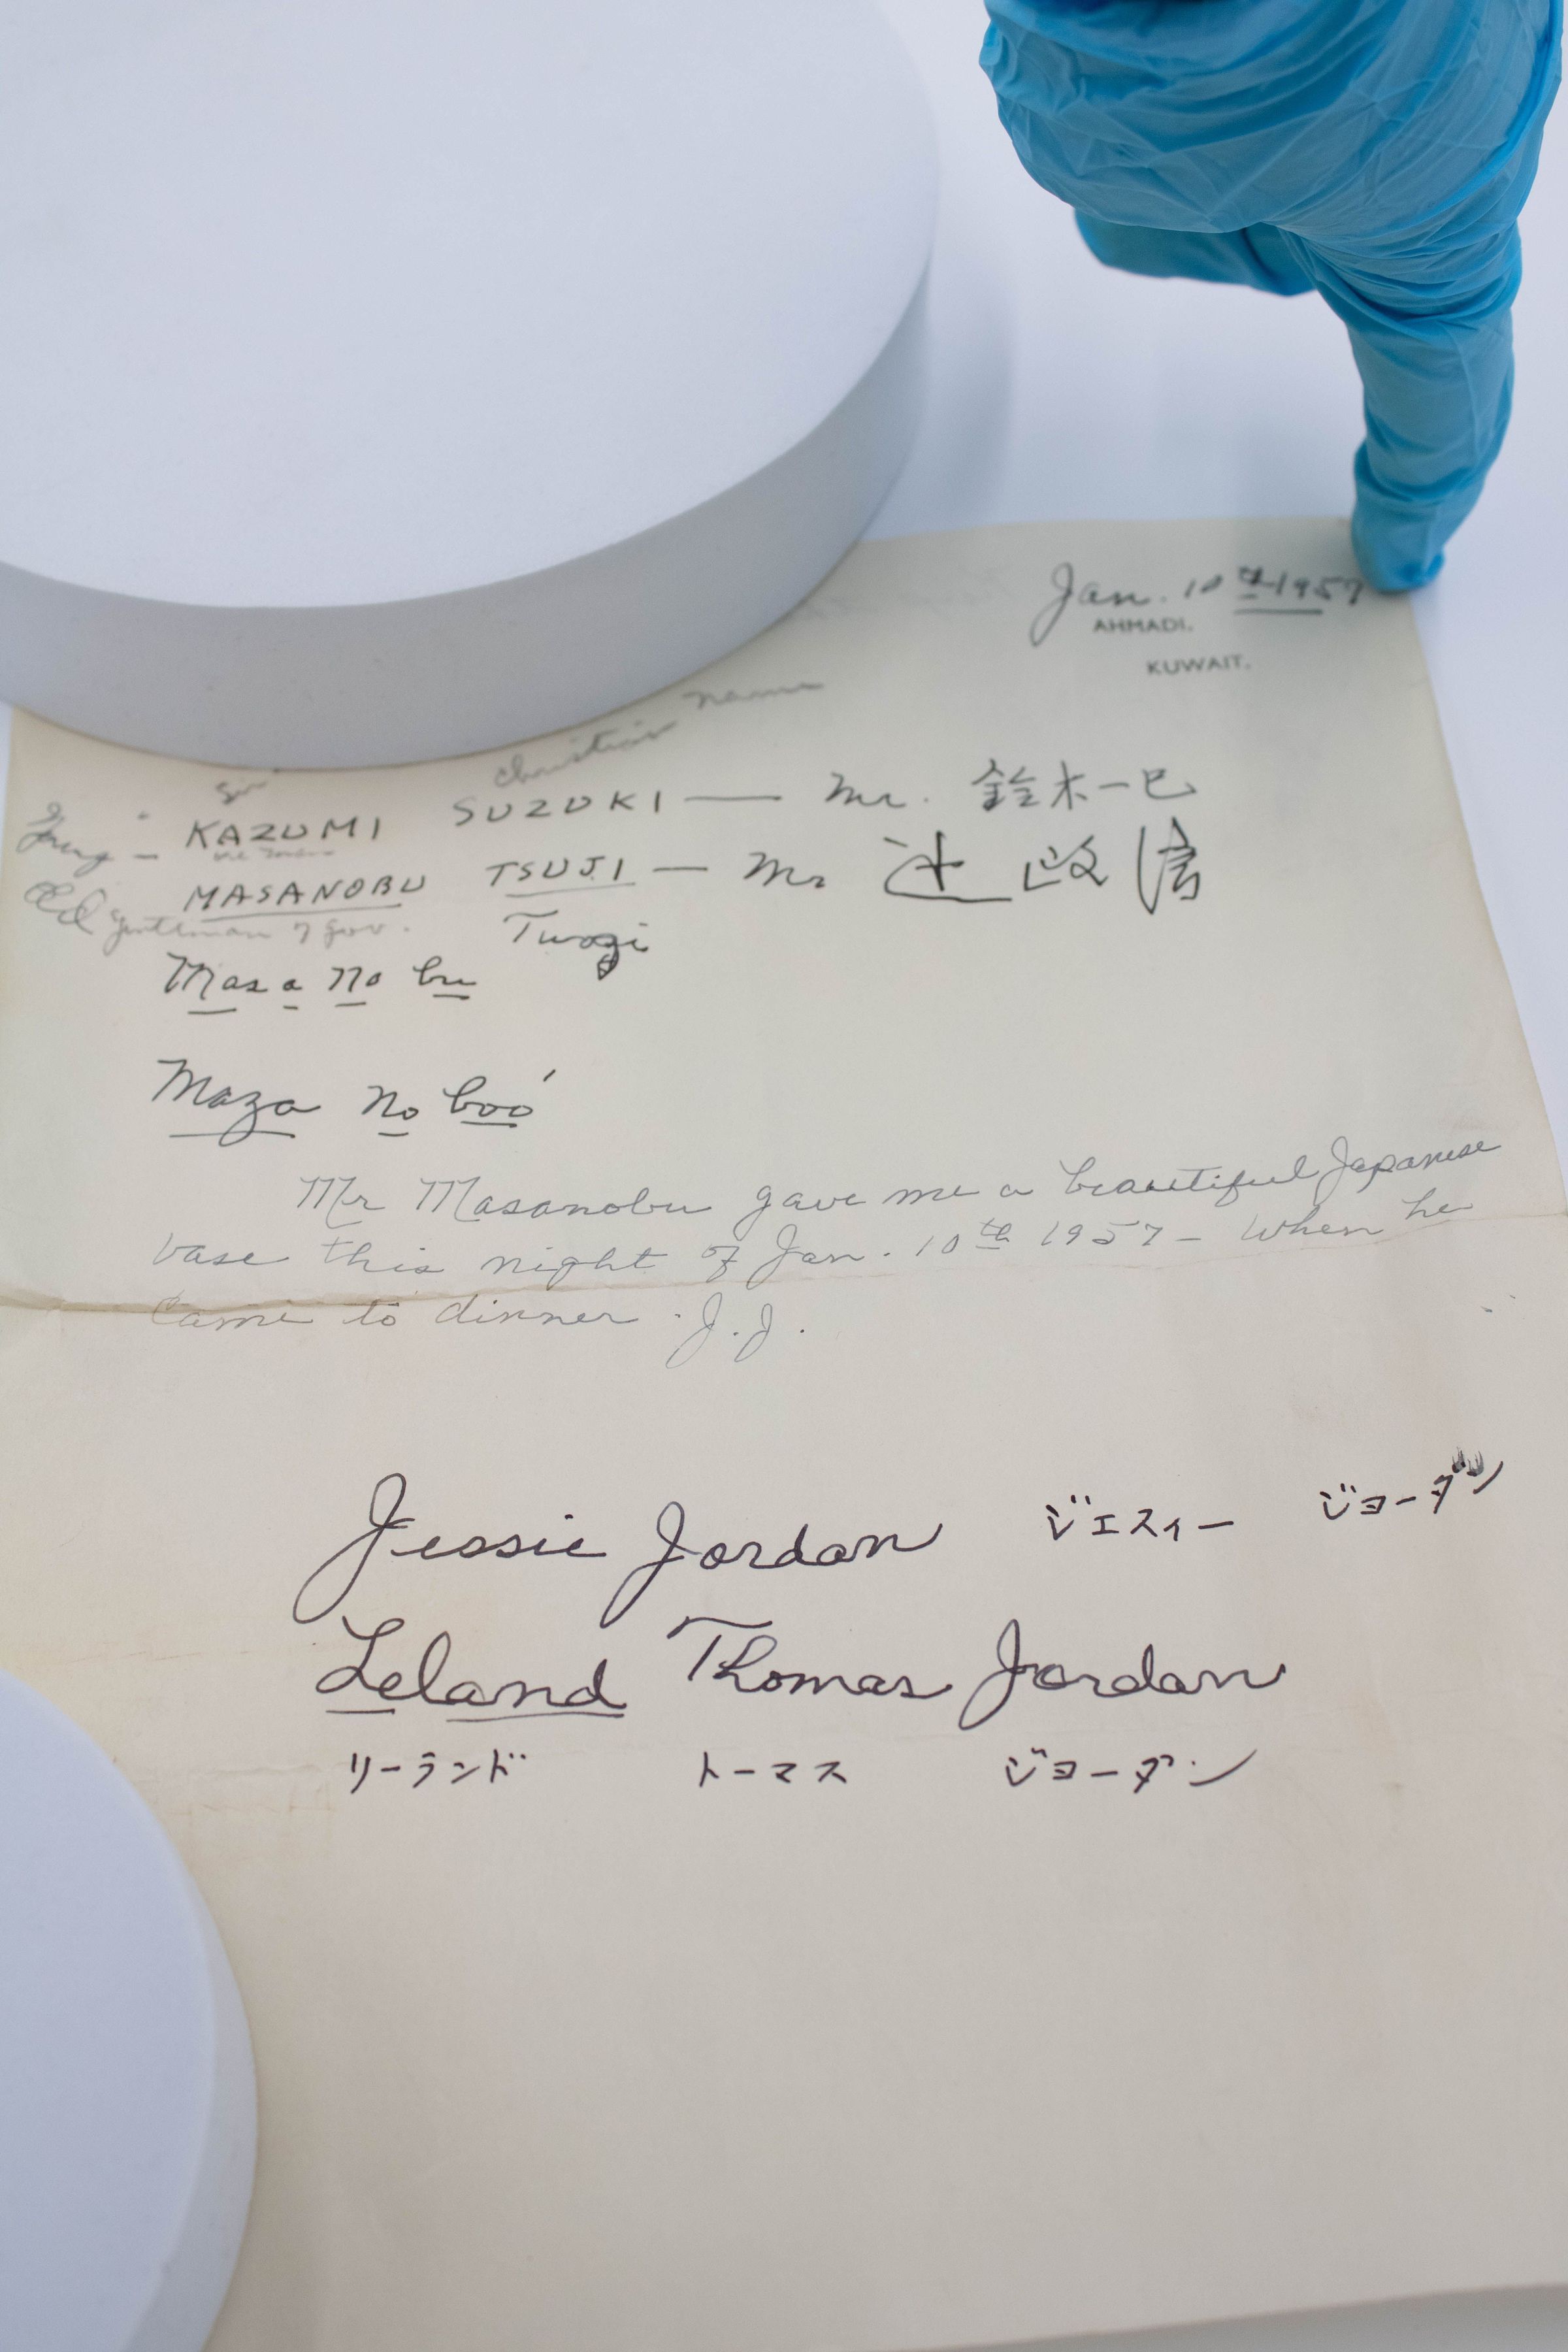 Jan. 10th 1957
AHMADI.
KUWAIT.
Christian name
KAZUMI SUZUKI — Mr. 鈴木一巳
MASANOBU TSUJI — Mr 辻 政信
gentleman of gov.
Masa No bu
Maza No boó
Mr Masanobu gave me a beautiful Japanese
vase this night of Jan. 10th 1957 - When he
Came to dinner. J.J.
Jessie Jordan ジエスィー ジョーダン
Leland Thomas Jordan
リーランド トーマス ジョーダン